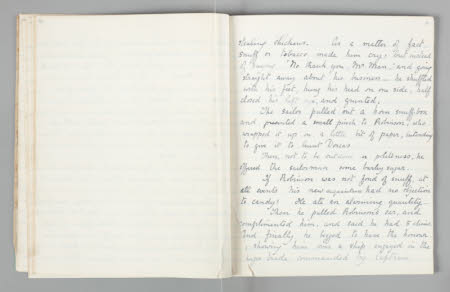 stealing chickens. As a matter of fact
snuff or tobacco made him sneeze; but instead
of saying "No thank you, Mr. Man," and going
straight away about his business — he shuffled
with his feet, hung his head on one side, half
closed his left eye, and grunted.
The sailor pulled out a horn snuff-box
and presented a small pinch to Robinson; who
wrapped it up in a little bit of paper, intending
to give it to Aunt Dorcas.
Then, not to be outdone in politeness, he
offered the sailorman some barley sugar.
If Robinson was not fond of snuff, at
all events his new acquaintance had no objection
to candy! He ate an alarming quantity.
Then he pulled Robinson's ear, and
complimented him, and said he had 5 chins
and finally he begged to have the honour
of showing him over a ship engaged in the
trade commanded by Captain